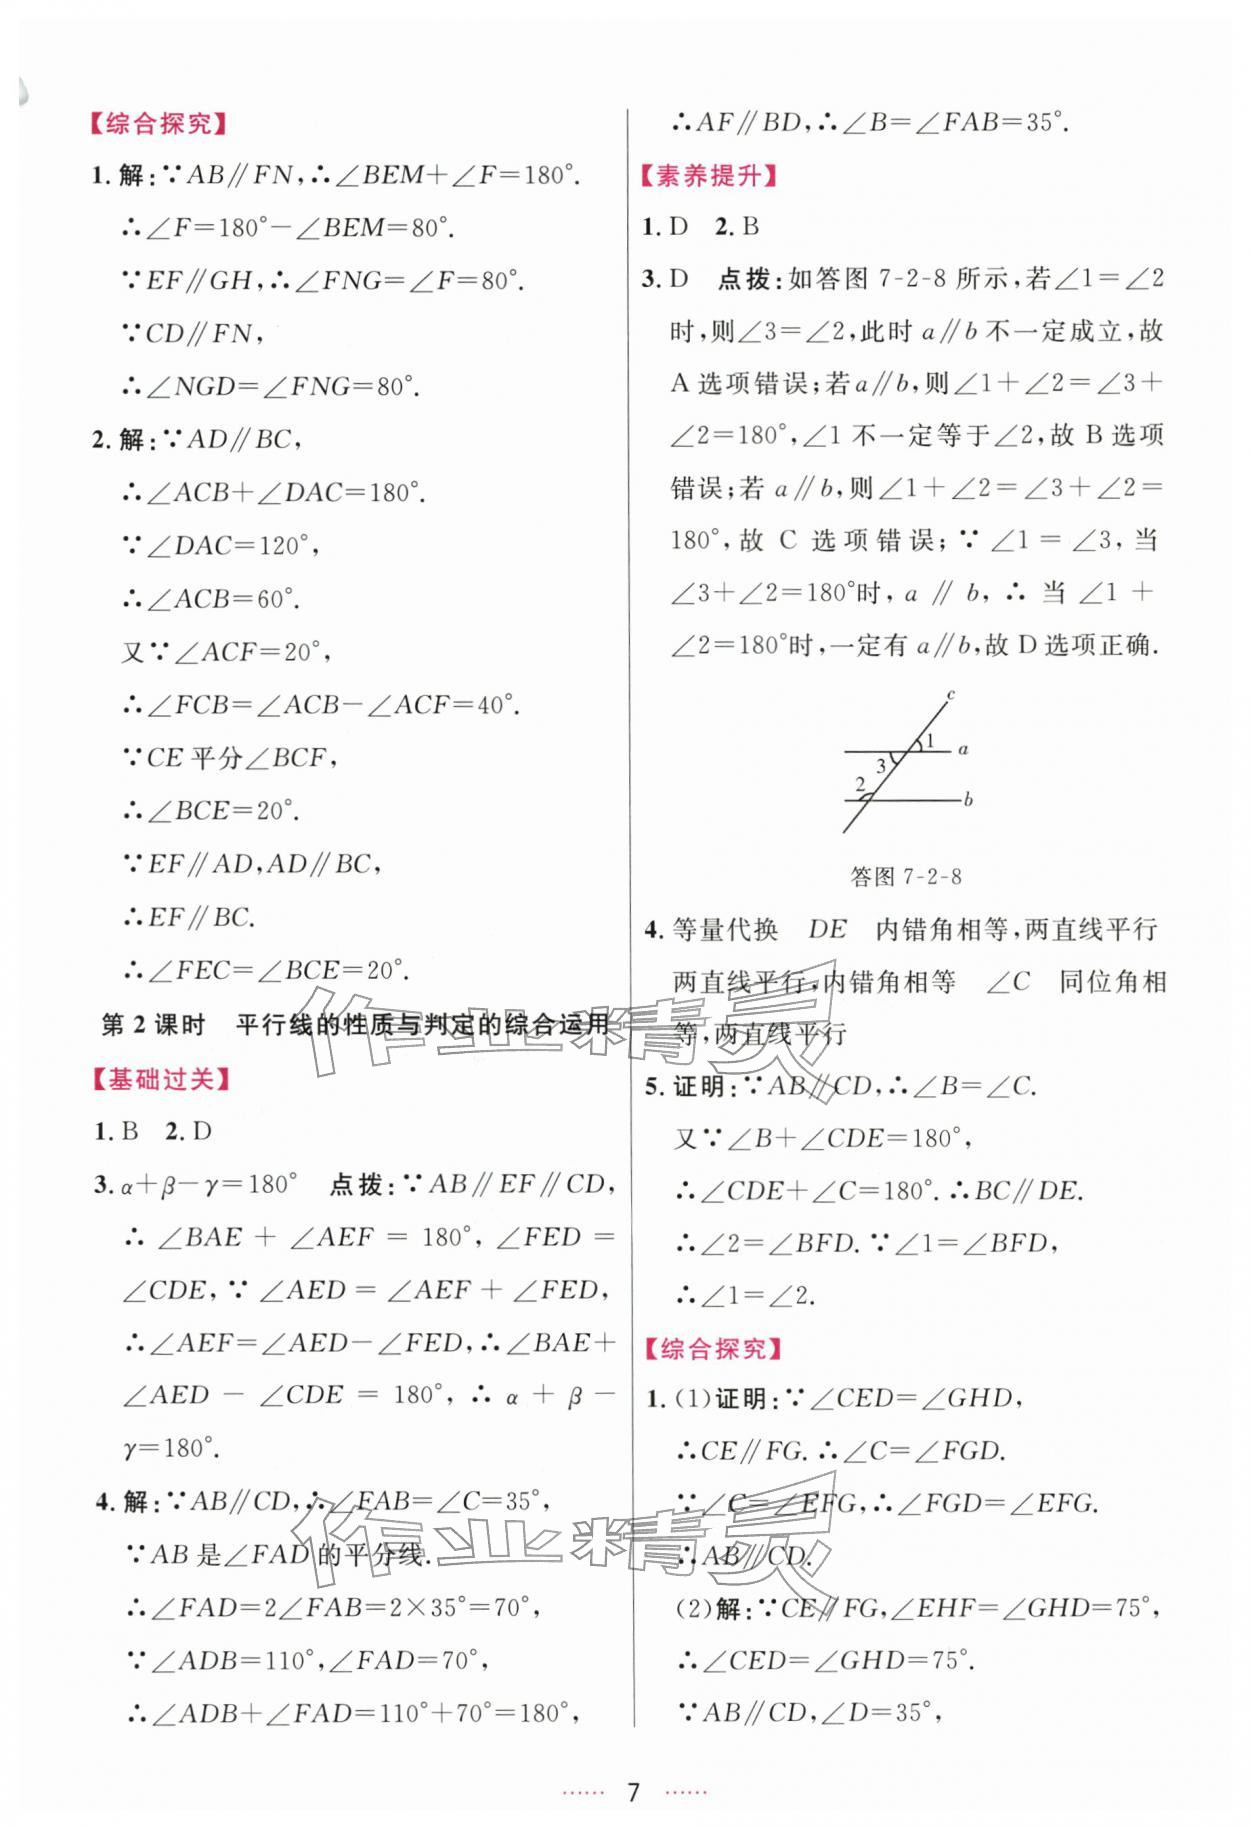 【综合探究】
1.解:∵AB∥FN,∴∠BEM+∠F=180°.
∴∠F=180°-∠BEM=80°.
∵EF∥GH,∴∠FNG=∠F=80°.
∵CD∥FN,
∴∠NGD=∠FNG=80°.
2.解:∵AD∥BC,
∴∠ACB+∠DAC=180°.
∵∠DAC=120°,
∴∠ACB=60°.
又∵∠ACF=20°,
∴∠FCB=∠ACB-∠ACF=40°.
∵CE平分∠BCF,
∴∠BCE=20°.
∵EF∥AD,AD∥BC,
∴EF∥BC.
∴∠FEC=∠BCE=20°.
第2课时 平行线的性质与判定的综合运用
【基础过关】
1.B 2.D
3.α+β-γ=180° 点拨:∵AB∥EF∥CD,
∴∠BAE+∠AEF=180°,∠FED=
∠CDE,∵∠AED=∠AEF+∠FED,
∴∠AEF=∠AED-∠FED,∴∠BAE+
∠AED-∠CDE=180°,∴α+β-
γ=180°.
4.解:∵AB∥CD,∴∠FAB=∠C=35°,
∵AB是∠FAD的平分线.
∴∠FAD=2∠FAB=2×35°=70°,
∵∠ADB=110°,∠FAD=70°,
∴∠ADB+∠FAD=110°+70°=180°,
∴AF∥BD,∴∠B=∠FAB=35°.
【素养提升】
1.D 2.B
3.D 点拨:如答图7-2-8所示,若∠1=∠2
时,则∠3=∠2,此时a∥b不一定成立,故
A选项错误;若a∥b,则∠1+∠2=∠3+
∠2=180°,∠1不一定等于∠2,故B选项
错误;若a∥b,则∠1+∠2=∠3+∠2=
180°,故C选项错误;∵∠1=∠3,当
∠3+∠2=180°时,a∥b,∴当∠1+
∠2=180°时,一定有a∥b,故D选项正确.
c
1
a
3
2
b
答图7-2-8
4.等量代换 DE 内错角相等,两直线平行
两直线平行,内错角相等 ∠C 同位角相
等,两直线平行
5.证明:∵AB∥CD,∴∠B=∠C.
又∵∠B+∠CDE=180°,
∴∠CDE+∠C=180°.∴BC∥DE.
∴∠2=∠BFD.∵∠1=∠BFD,
∴∠1=∠2.
【综合探究】
1.(1)证明:∵∠CED=∠GHD,
∴CE∥FG.∴∠C=∠FGD.
∵∠C=∠EFG,∴∠FGD=∠EFG.
∴AB∥CD.
(2)解:∵CE∥FG,∠EHF=∠GHD=75°,
∴∠CED=∠GHD=75°.
∵AB∥CD,∠D=35°,
作业精灵
作业精灵
7